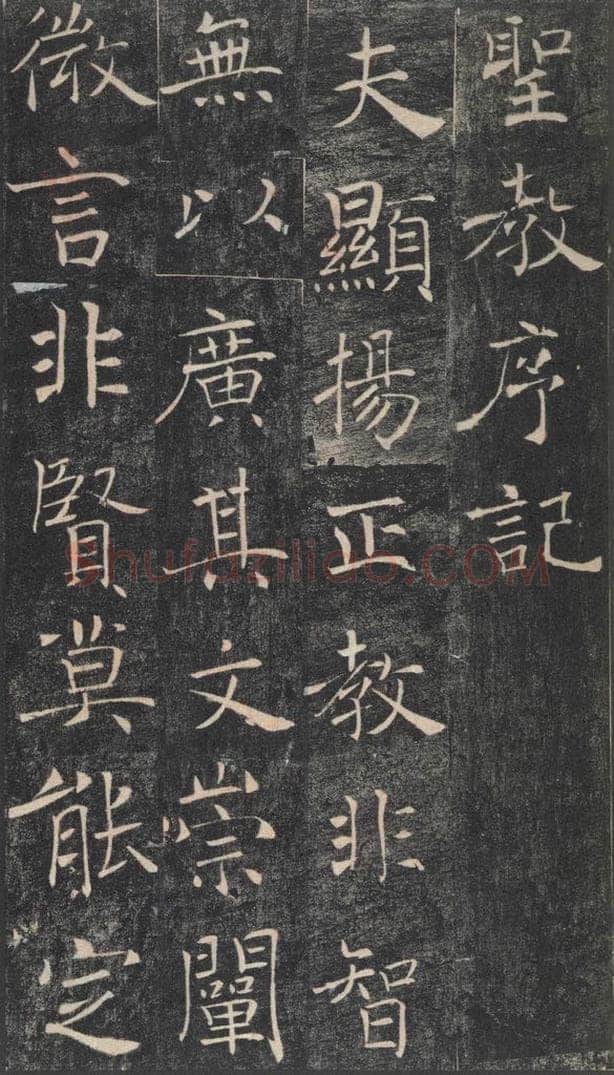 聖教序記
夫顯揚正教非智
無以廣其文崇闡
微言非賢莫能定
Shufaziliao.COM